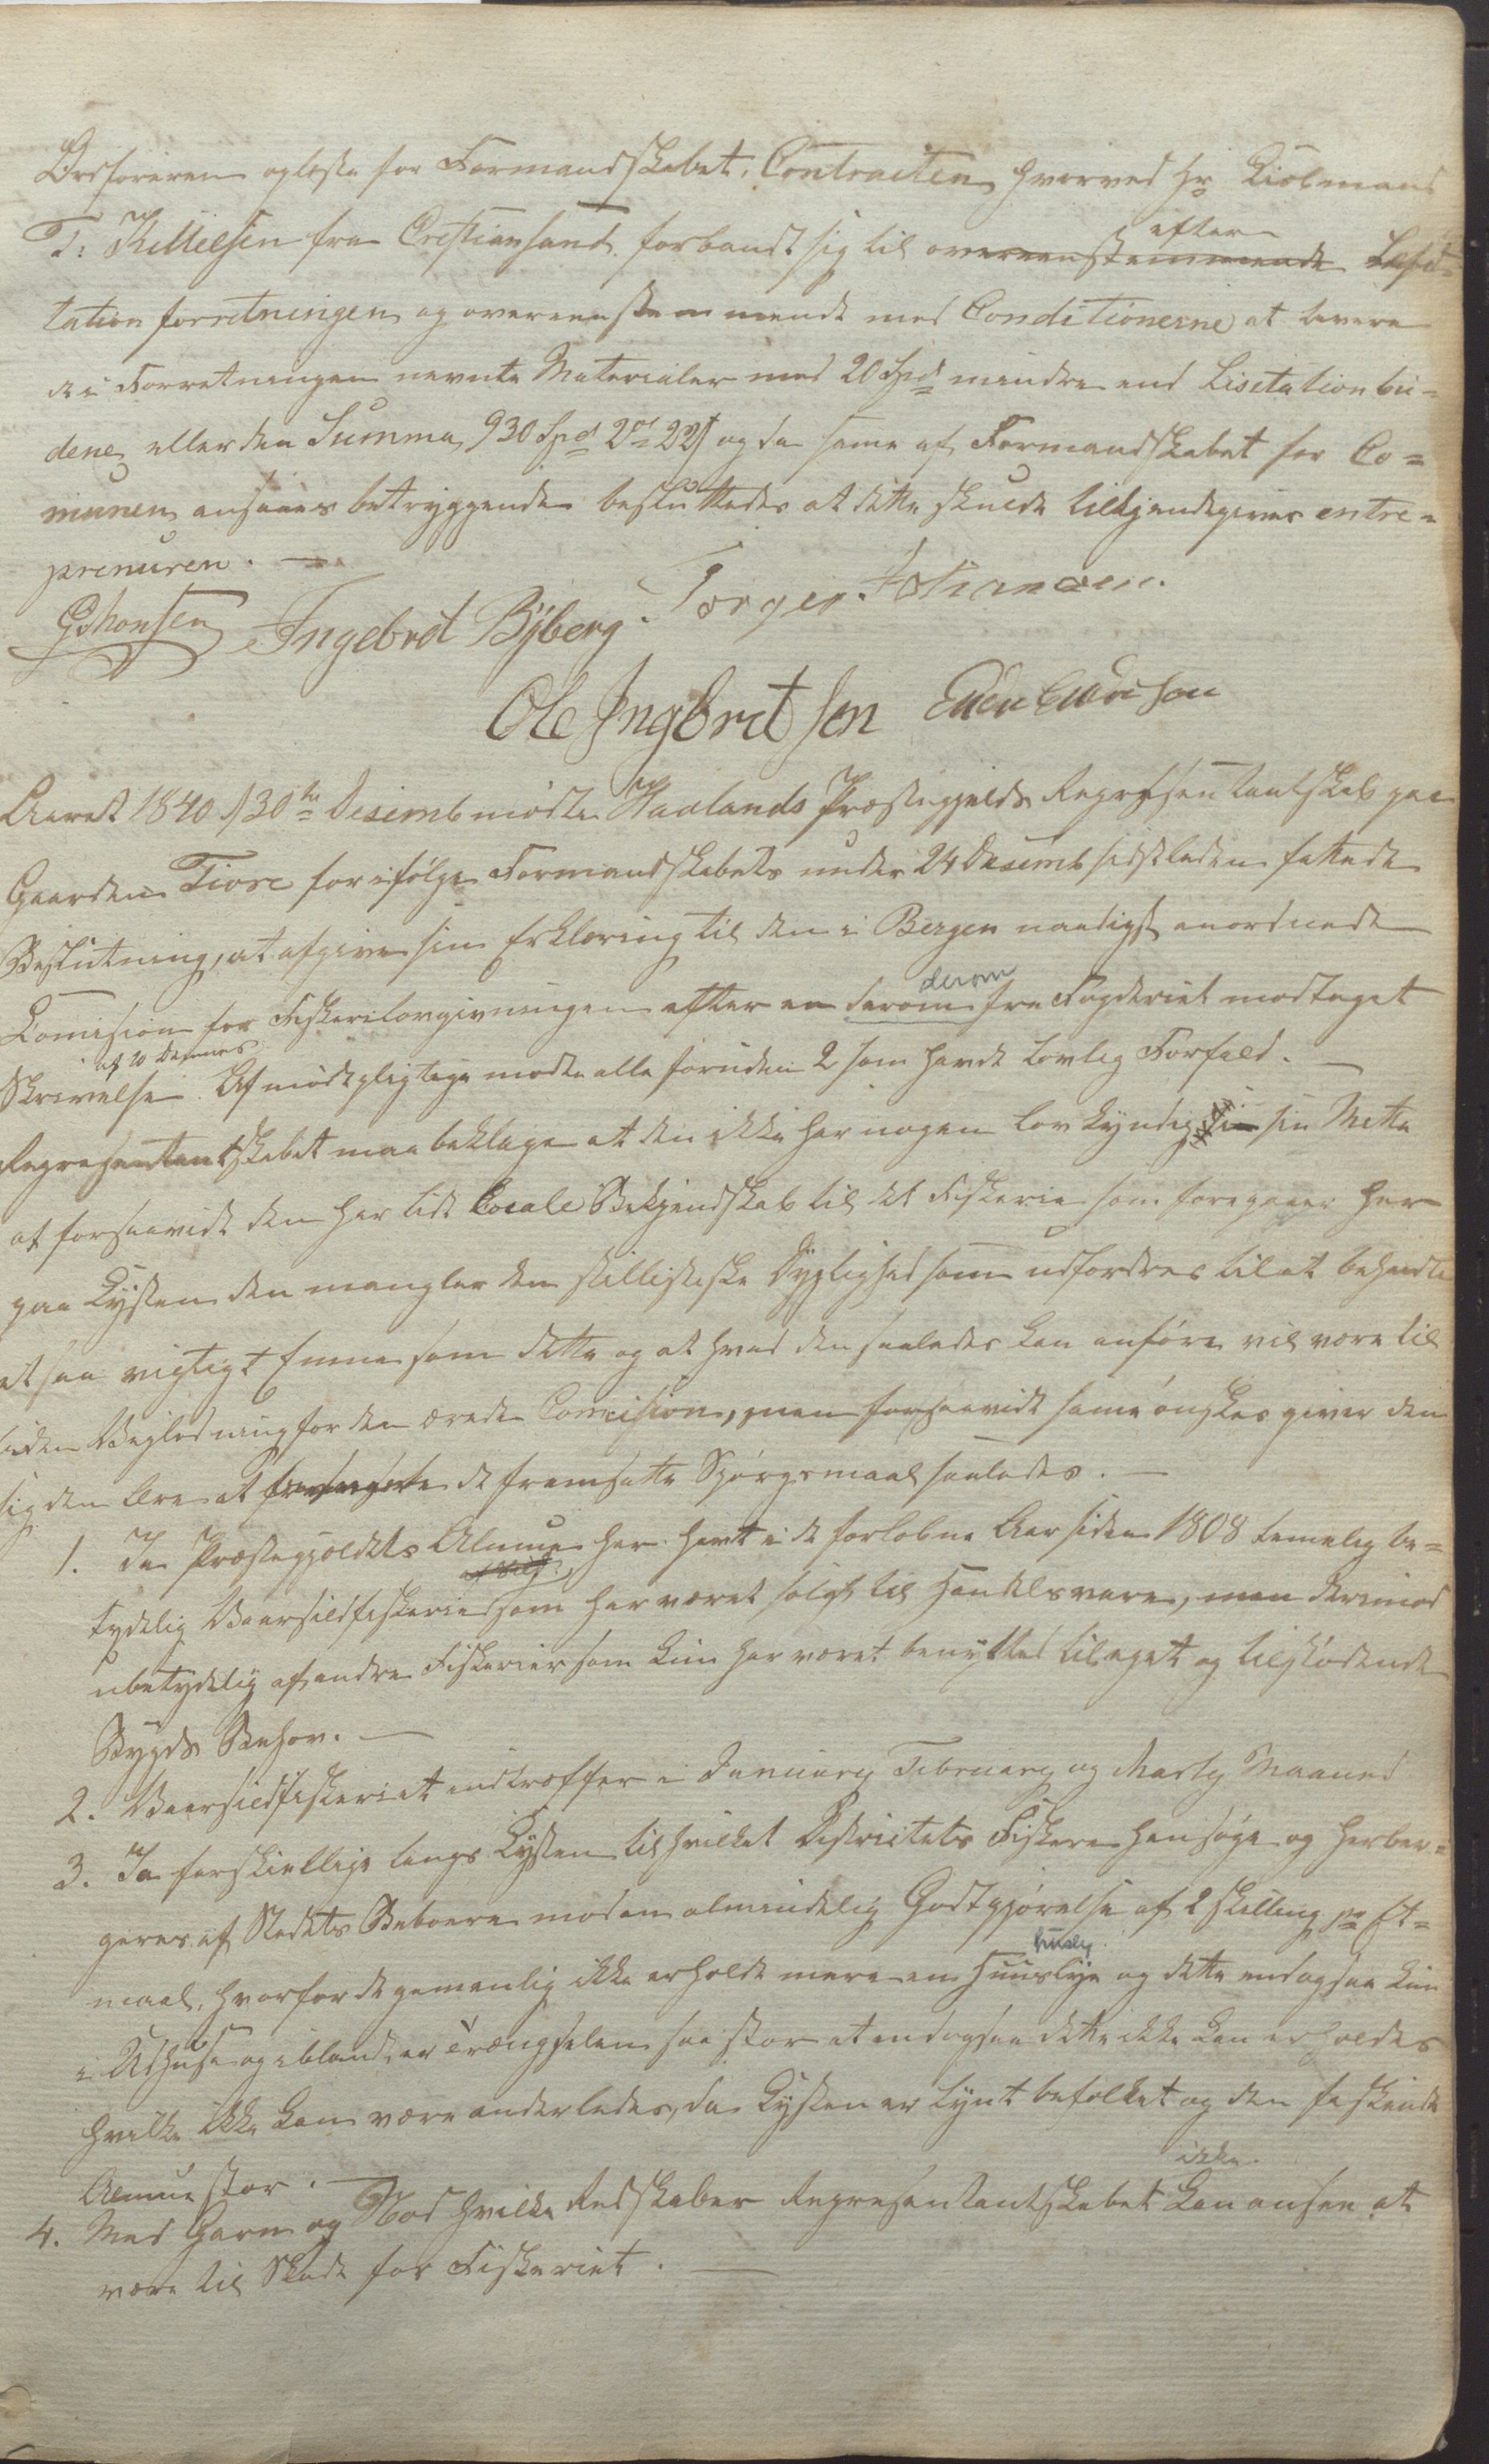 Ordføreren oplæste for Formandskabet, Contracten hvorved Hr Kiøbmand
T: Killielsen fra Crestiansand forbandt sig til overeenstemmende efter Lesci-
tation forretningen og overeenstemmende med Conditionerne at levere
de i Forretningen nevnte Materialer med 20 Spd mindre end Lisctationbu-
dene eller den Summa 930 Spd 2 ort 22 s og da same af Formandskabet for Co-
munen ansaaes betryggende besluttedes at dette skulde tilkjendegives entre-
prenuren. —
GJohonsen Ingebret Byberg. Torger Johanesen.
Ole Ingbretsen Even Evensen
Aaret 1840 d 30te Desemb mødte Haalands Præstegjelds Represæntantskab paa
Gaarden Tiore for ifølge Formandskabets under 24 Desemb sidstleden fattede
Beslutning, at afgive sin Erklæring til den i Bergen naadigst anordnede
Comision for Fiskerilovgivningen efter en derom derom fra Fogderiet modtaget
Skrivelse af 10 Dennes. Af mødepligtige mødte alle foruden 2 som havde lovlig Forfald. —
Representantskabet maa beklage at den ikke har nogen lovkyndig i sin Mitte
at forsaavidt den har lidt locale Bekjendskab til det Fiskerie som foregaaer her
paa Kysten den mangler den stillistiske Dygtighed som udfordres til at behandle
et saa vigtigt Emne som dette og at hvad den saaledes kan anføre vil være til
liden Veiledning for den ærede Comision, men forsaavidt same ønskes giver den
sig den Ære at besvare de fremsatte Spørgsmaal saaledes. —
1. Ja Præstegjeldets Almue har havt i de forløbne Aar siden 1808 temelig be-
tydelig Vaarsildfiskerie som har været solgt til Handelsvare, men derimod
ubetydelig af andre Fiskerier som kun har været benyttet til eget og tilstødende
Bygds Behov. —
2. Vaarsildfiskeriet indtræffer i January February og Marty Maaned
3. Ja forskiellige langs Kysten til hvilket Districtets Fiskere hensøge og herber-
geres af Stedets Beboere mod en almindelig Godtgjørelse af 2 skilling pr Et-
maal, hvorfor de gemenlig ikke erholde mere en Huuslye husly og dette endogsaa kun
i Udhuse og iblandt er Trængselen saa stor at endogsaa dette ikke kan erholdes
hvilke ikke kan være anderledes, da Kysten er tynt befolket og den fiskende
Almue stor. —
4. Med Garn og Nod hvilke Redskaber Representantskabet ikke kan ansee at
være til Skade for Fiskeriet. —